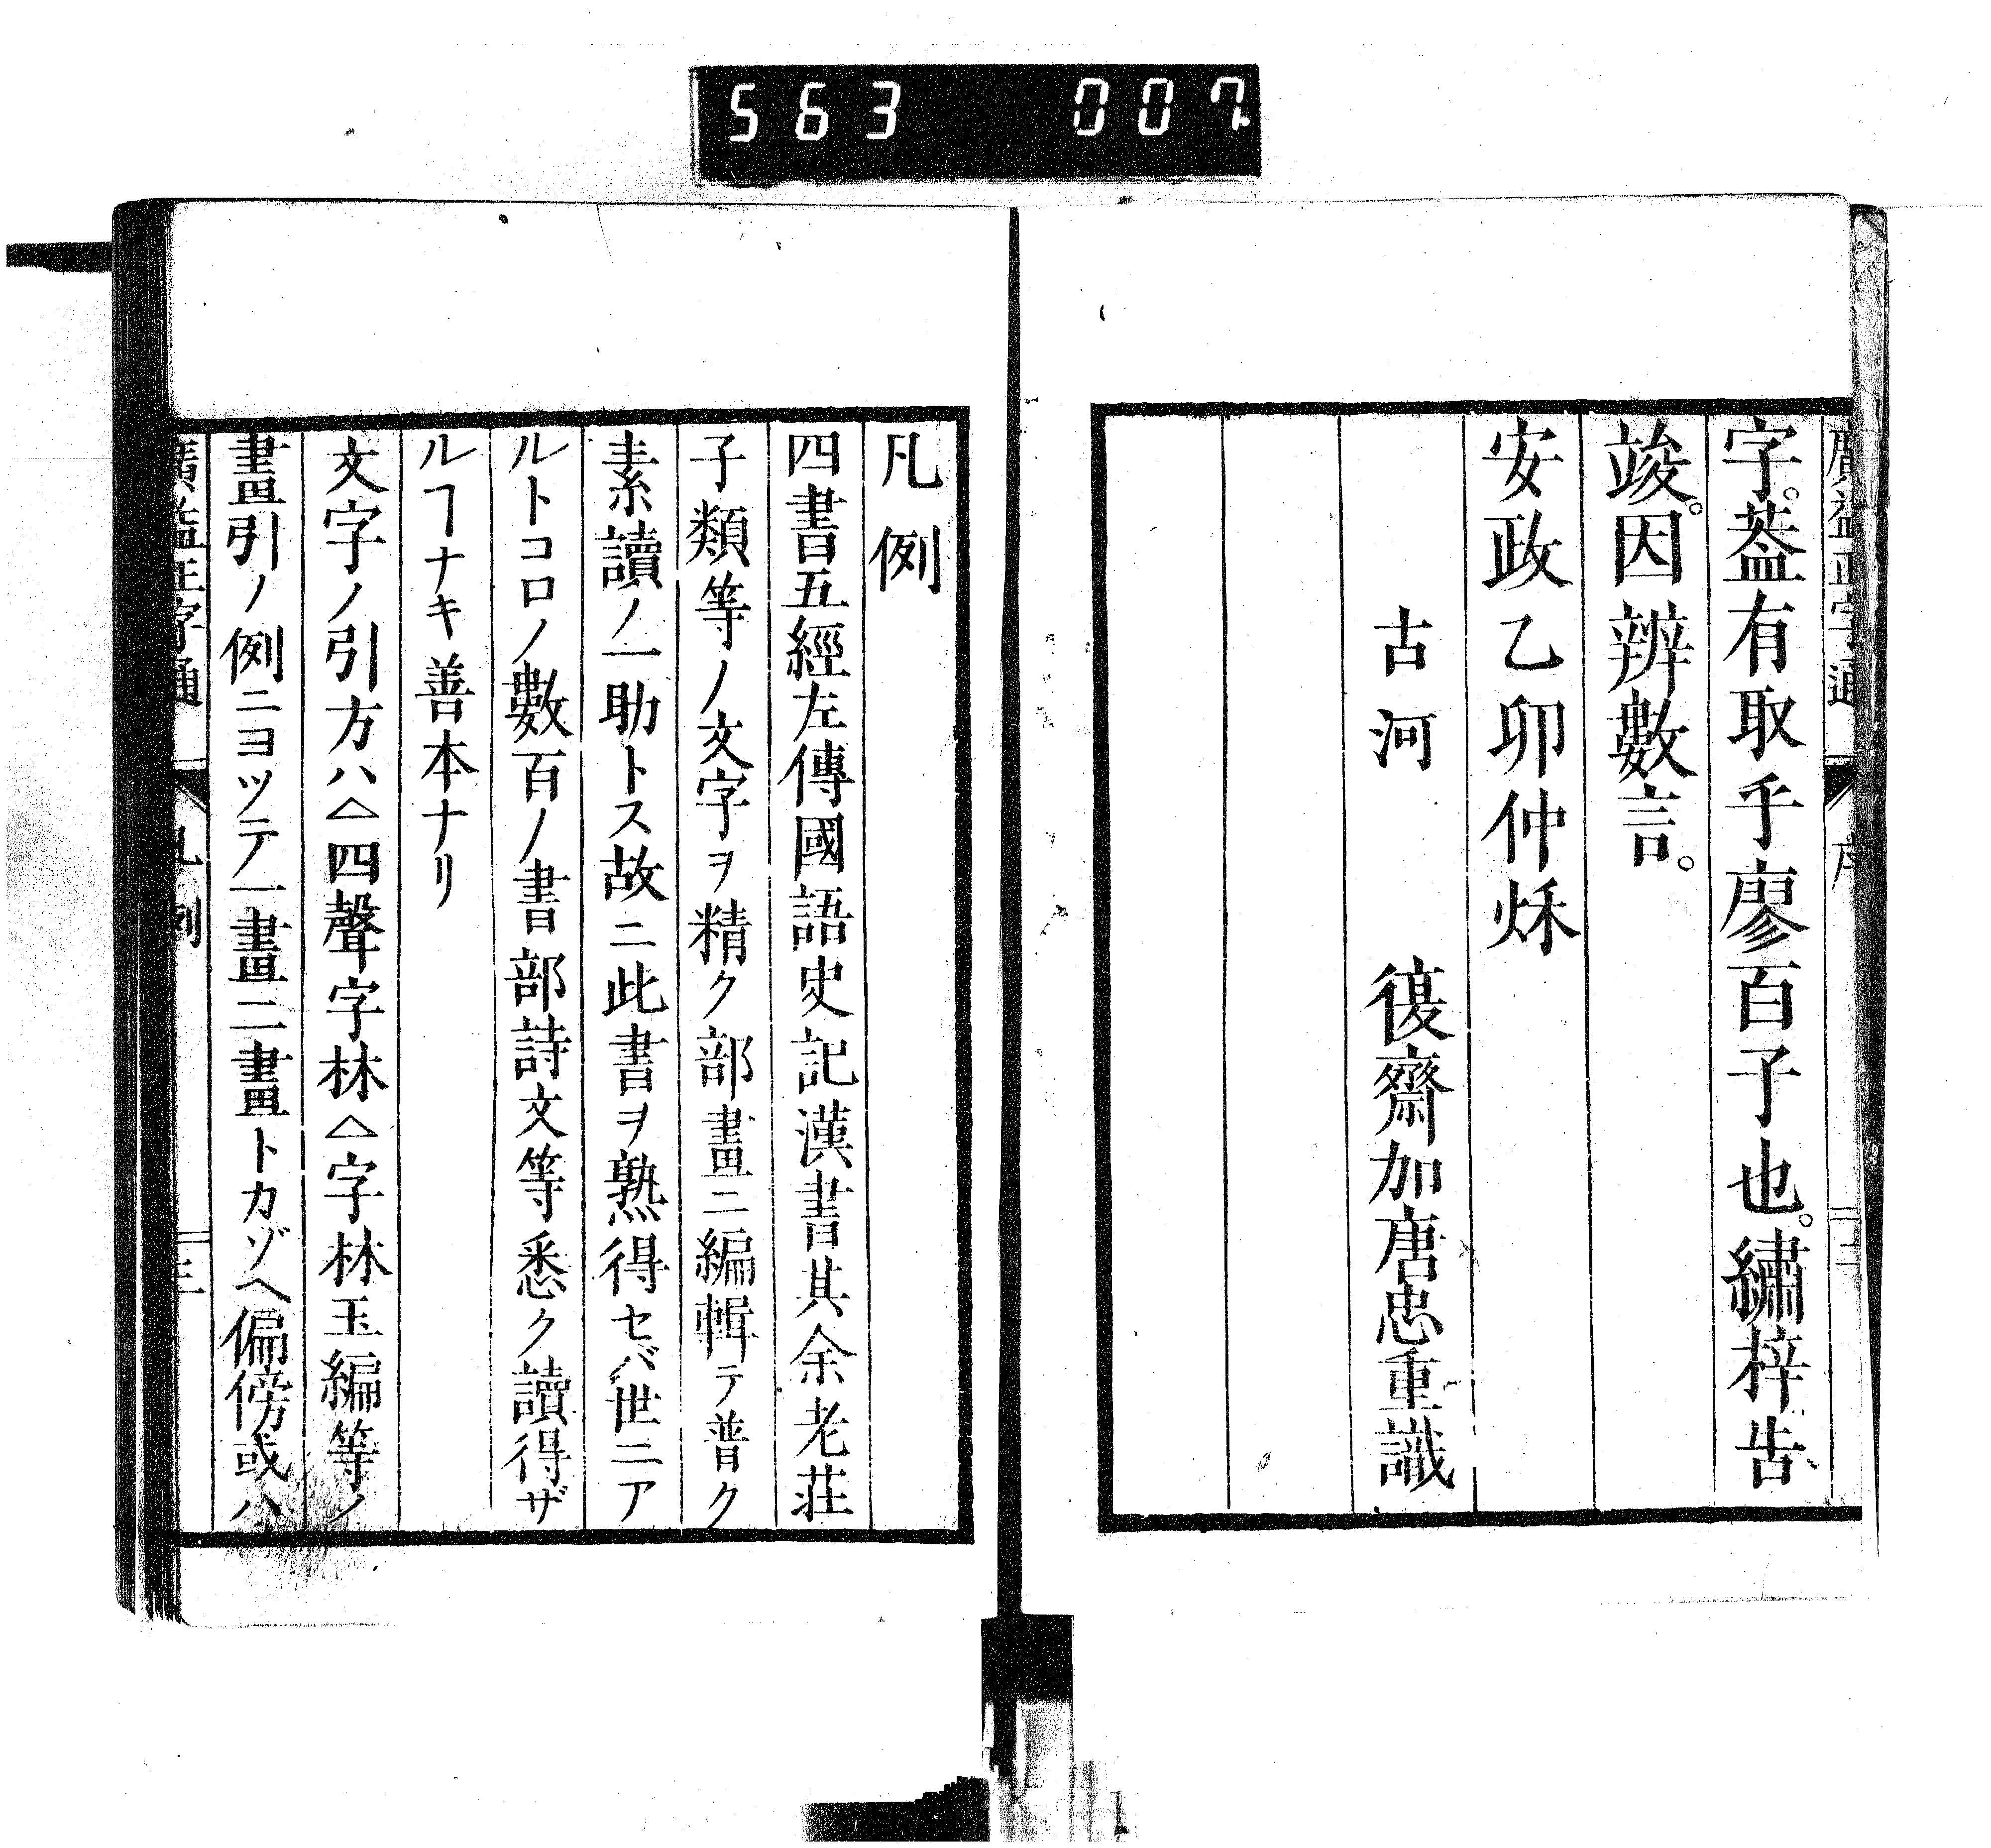 563 007
廣益正字通 序
字。葢有取乎廖百子也。繡梓告
竣。因辨數言。
安政乙卯仲秌
古河 復齋加唐忠重識
凡例
四書五經左傳國語史記漢書其余老莊
子類等ノ文字ヲ精ク部畫ニ編輯テ普ク
素讀ノ一助トス故ニ此書ヲ熟得セバ世ニア
ルトコロノ數百ノ書部詩文等悉ク讀得ザ
ルヿナキ善本ナリ
文字ノ引方ハ︿四聲字林︿字林玉編等ノ
畫引ノ例ニヨツテ一畫二畫トカゾヘ偏傍或ハ
廣益正字通 凡例 三